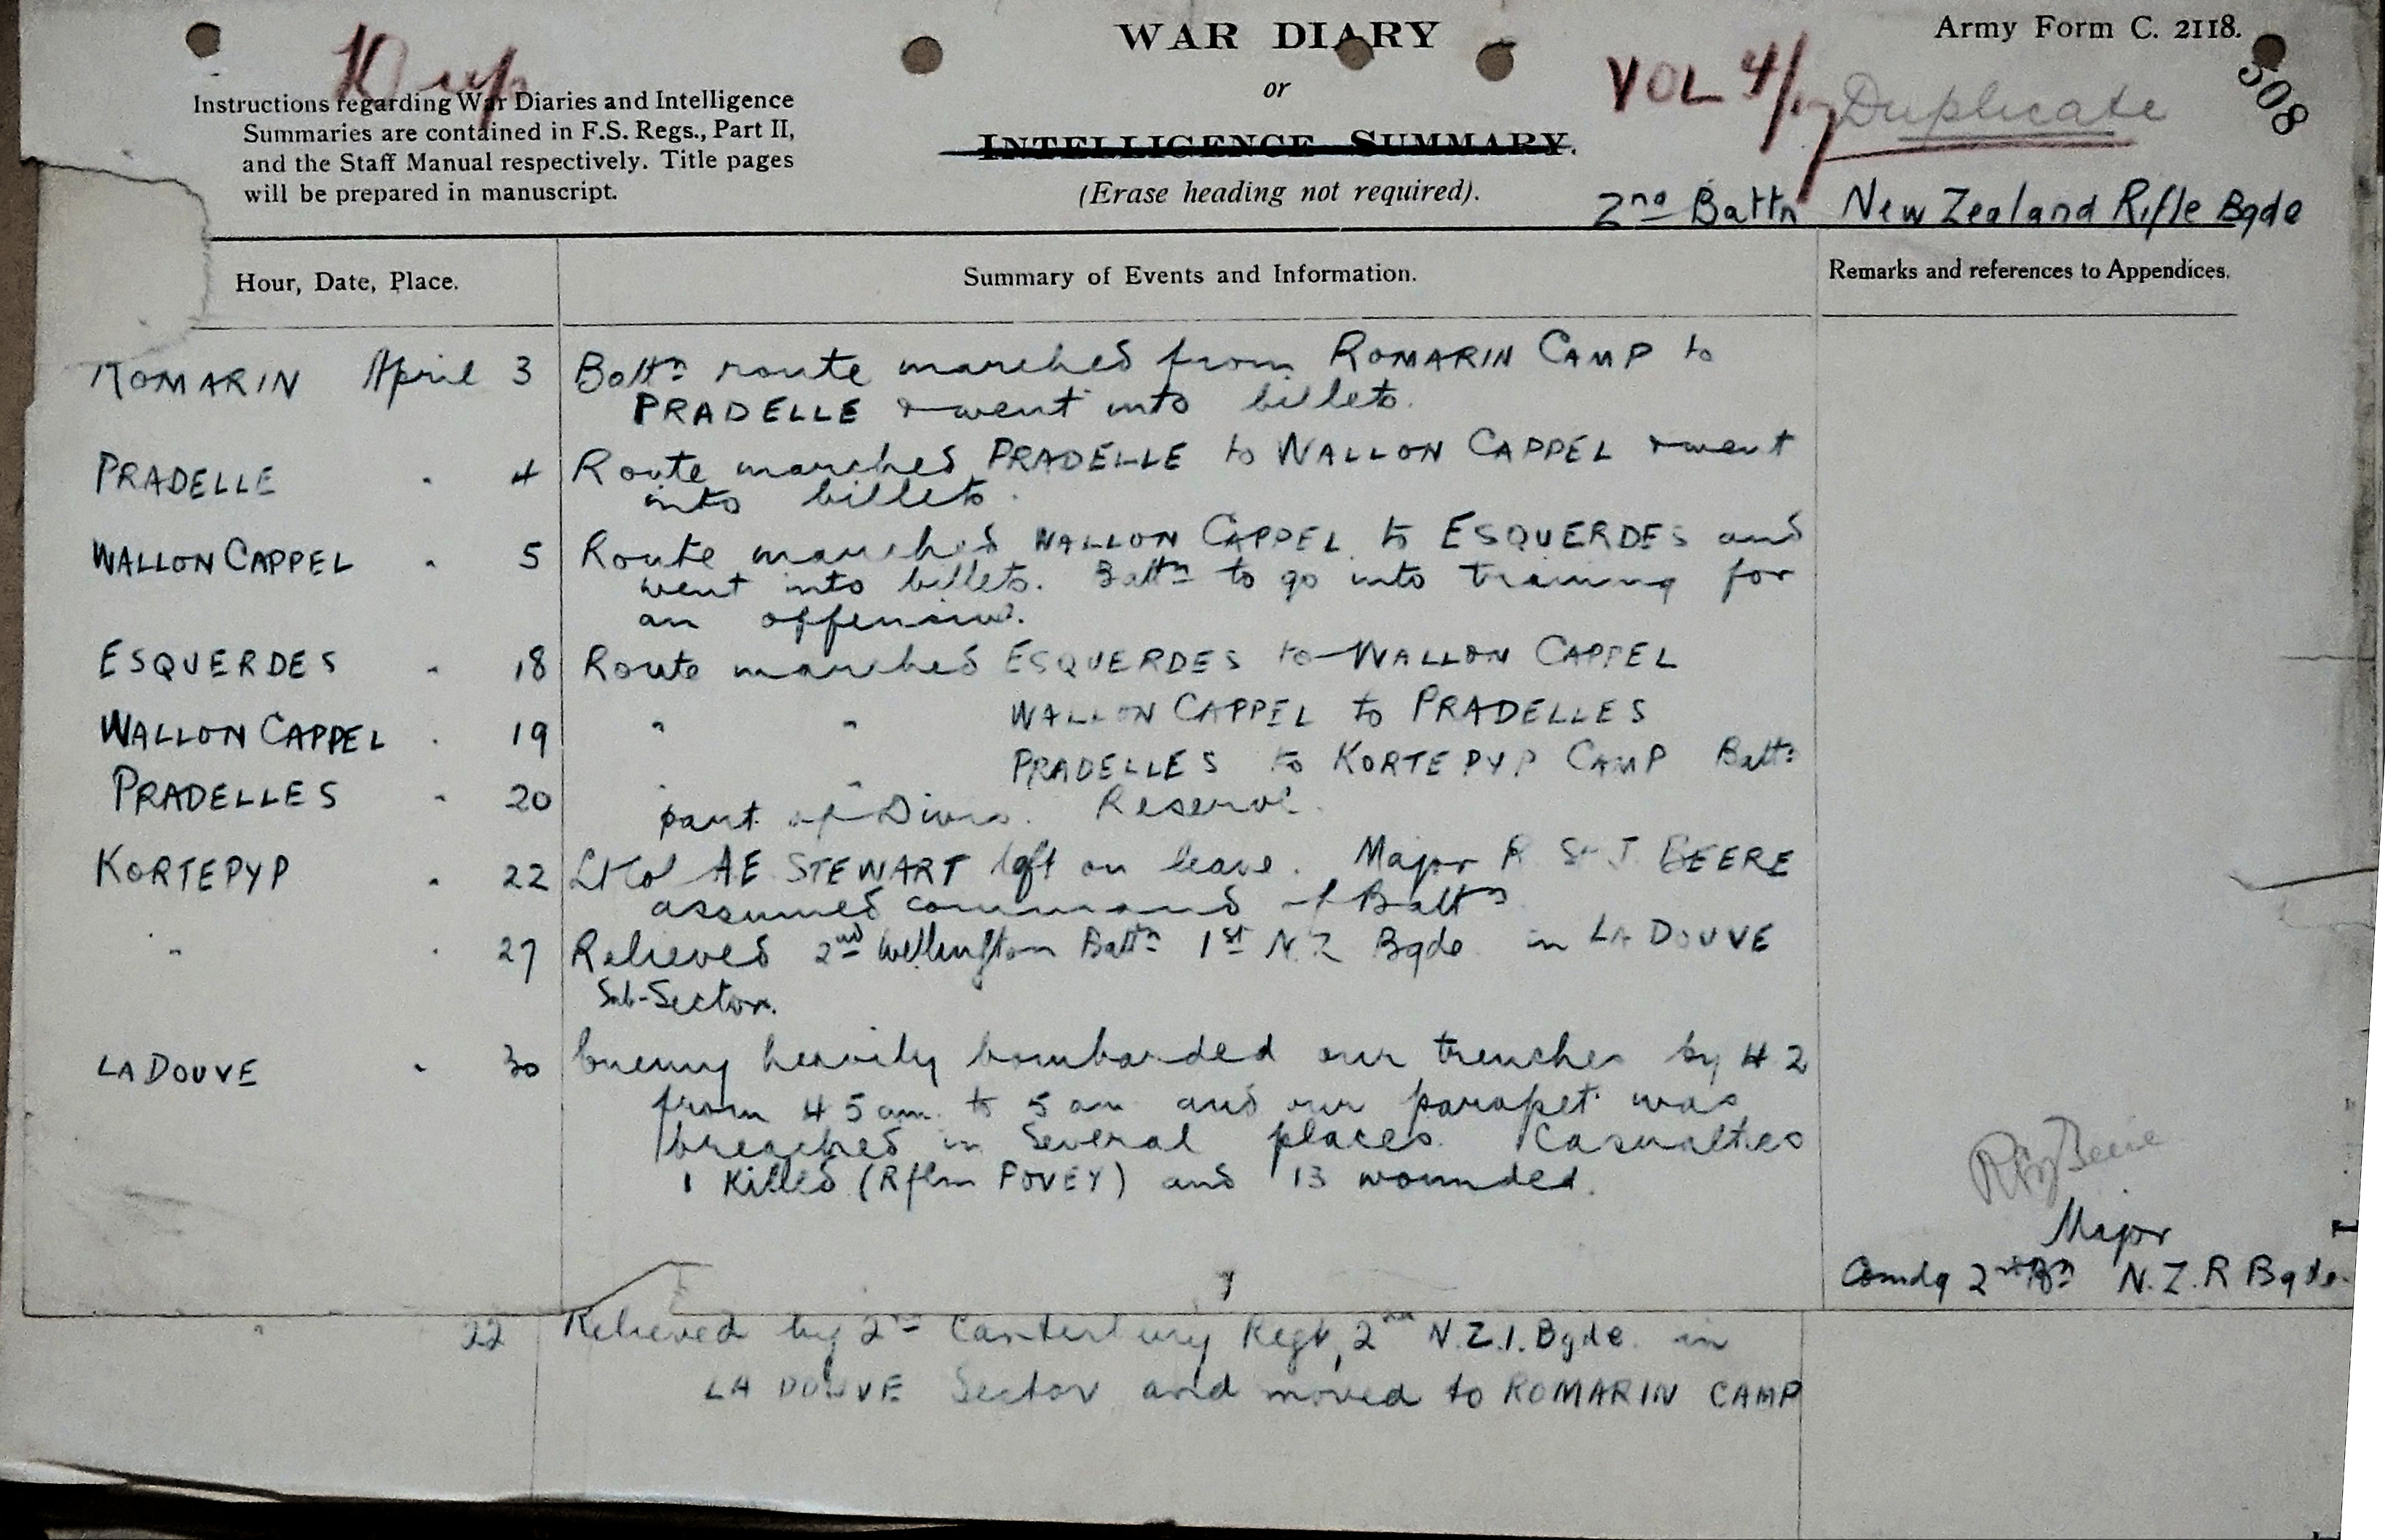 WAR DIARY
Army Form C. 2118.
or
INTELLIGENCE SUMMARY.
(Erase heading not required).
VOL 4/17
Duplicate
508
Instructions regarding War Diaries and Intelligence
Summaries are contained in F.S. Regs., Part II,
and the Staff Manual respectively. Title pages
will be prepared in manuscript.
2nd Battn New Zealand Rifle Bgde
Hour, Date, Place.
Summary of Events and Information.
Remarks and references to Appendices.
ROMARIN April 3 Battn route marched from ROMARIN CAMP to
PRADELLE & went into billets.
PRADELLE " 4 Route marched PRADELLE to WALLON CAPPEL & went
into billets.
WALLON CAPPEL " 5 Route marched WALLON CAPPEL to ESQUERDES and
went into billets. Battn to go into training for
an offensive.
ESQUERDES " 18 Route marched ESQUERDES to WALLON CAPPEL
WALLON CAPPEL " 19 " " WALLON CAPPEL to PRADELLES
PRADELLES " 20 " " PRADELLES to KORTEPYP CAMP Battn
part of Divn. Reserve.
KORTEPYP " 22 Lt Col A E STEWART left on leave. Major R St J BEERE
assumed command of Battn
" " 27 Relieved 2nd Wellington Battn 1st N.Z Bgde in LA DOUVE
Sub-Sector.
LA DOUVE " 30 Enemy heavily bombarded our trenches by 4 2
from 4 5 am to 5 am and our parapet was
breached in several places. Casualties
1 Killed (Rflm POVEY) and 13 wounded.
Beere
Major
Comdg 2nd Bn N.Z.R Bgde.
" 22 Relieved by 2nd Canterbury Regt, 2nd N.Z.I. Bgde. in
LA DOUVE Sector and moved to ROMARIN CAMP